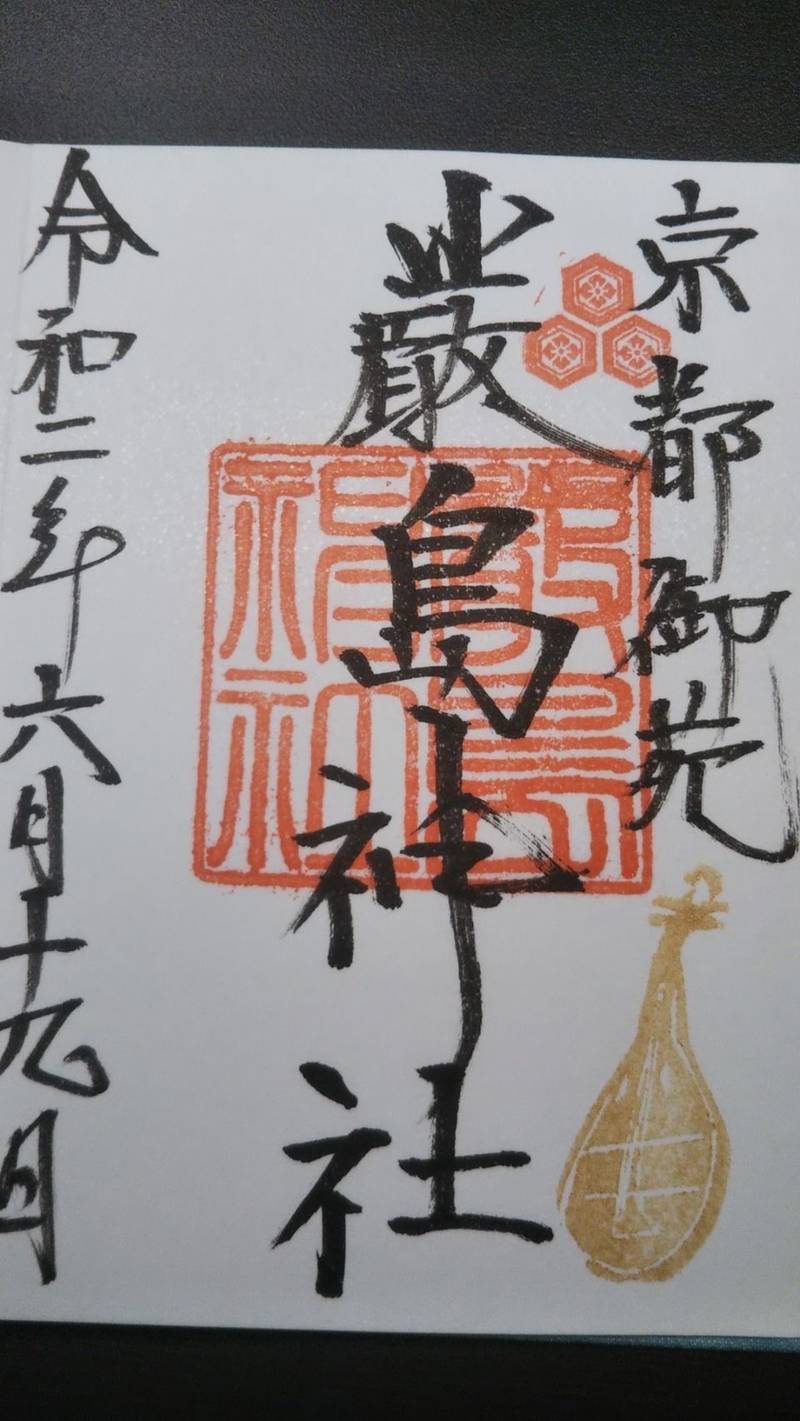 京都御苑
嚴島神社
嚴島神社
令和二年六月十九日